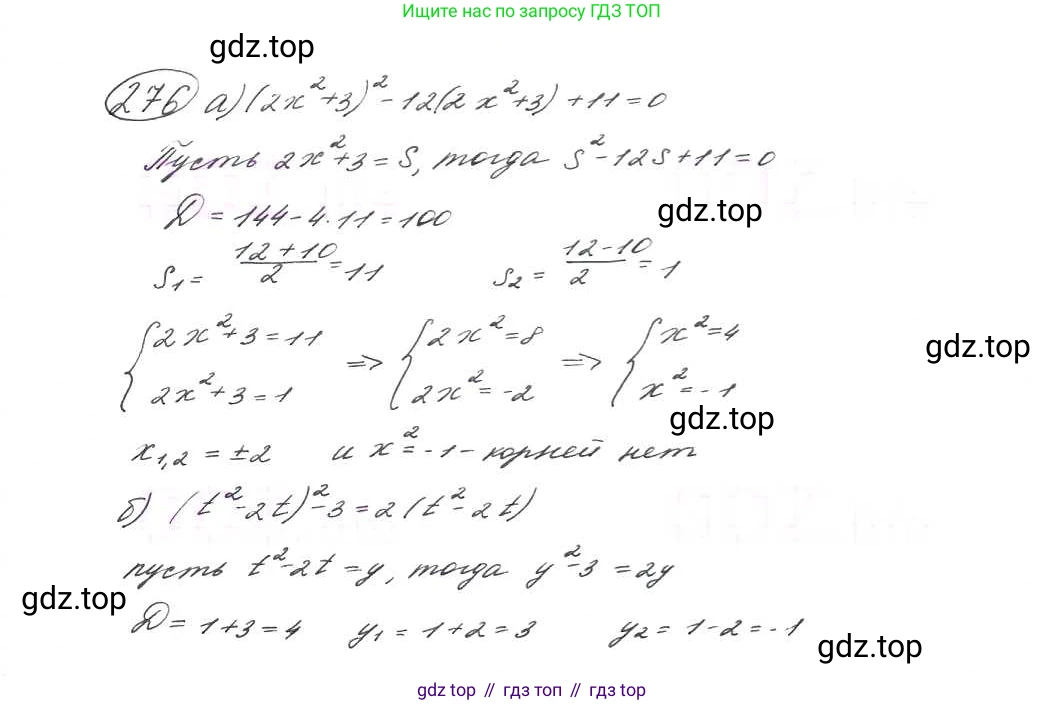 Ищите нас по запросу ГДЗ ТОП
gdz.top
276 а) (2x²+3)² - 12(2x²+3) + 11 = 0
Пусть 2x²+3 = S, тогда S² - 12S + 11 = 0
D = 144 - 4·11 = 100
gdz.top
S₁ = (12+10)/2 = 11 S₂ = (12-10)/2 = 1
{2x²+3 = 11 => {2x² = 8 => {x² = 4
gdz.top
{2x²+3 = 1 {2x² = -2 {x² = -1
gdz.top
x₁,₂ = ±2 и x² = -1 - корней нет
б) (t²-2t)² - 3 = 2(t²-2t)
пусть t²-2t = y, тогда y² - 3 = 2y
gdz.top
D = 1+3 = 4 y₁ = 1+2 = 3 y₂ = 1-2 = -1
gdz.top
gdz top // гдз топ // gdz top